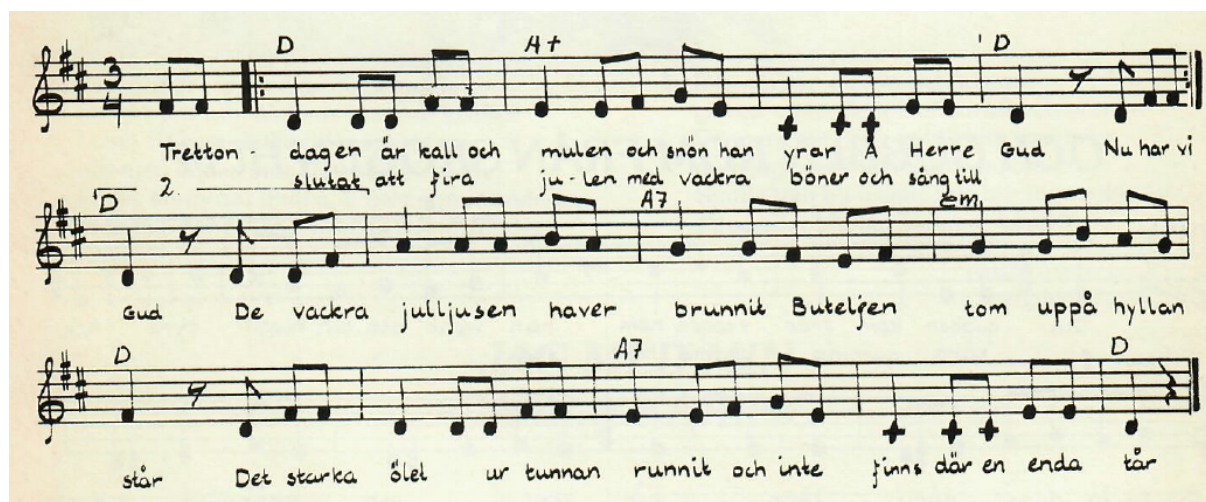 D A+ D
3 4
Tretton- dagen är kall och mulen och snön han yrar Å Herre Gud Nu har vi
slutat att fira ju-len med vackra böner och sång till
D 2. A7 em
Gud De vackra julljusen haver brunnit Buteljen tom uppå hyllan
D A7 D
står Det starka ölet ur tunnan runnit och inte finns där en enda tår